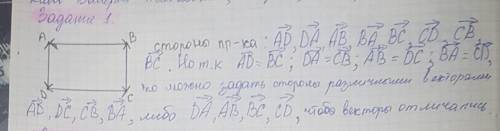 Задание 1.
A B
стороны пр-ка: AD, DA, AB, BA, BC, CD, CB,
D C
BC. Но т.к AD=BC; DA=CB; AB=DC; BA=CD,
то можно задать стороны различными векторами
AD, DC, CB, BA, либо DA, AB, BC, CD, чтобы векторы отличались.